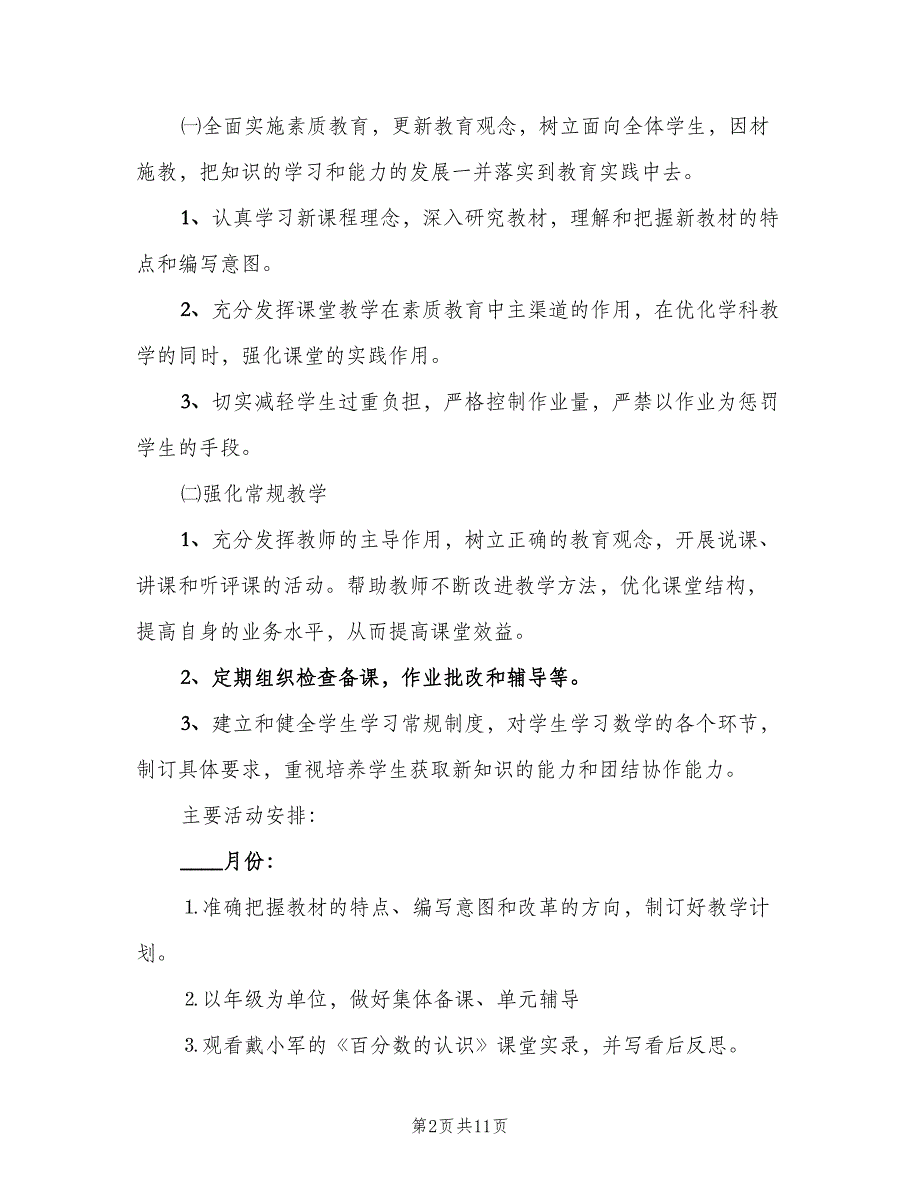 ㈠全面实施素质教育，更新教育观念，树立面向全体学生，因材
施教，把知识的学习和能力的发展一并落实到教育实践中去。
1、认真学习新课程理念，深入研究教材，理解和把握新教材的特
点和编写意图。
2、充分发挥课堂教学在素质教育中主渠道的作用，在优化学科教
学的同时，强化课堂的实践作用。
3、切实减轻学生过重负担，严格控制作业量，严禁以作业为惩罚
学生的手段。
㈡强化常规教学
1、充分发挥教师的主导作用，树立正确的教育观念，开展说课、
讲课和听评课的活动。帮助教师不断改进教学方法，优化课堂结构，
提高自身的业务水平，从而提高课堂效益。
2、定期组织检查备课，作业批改和辅导等。
3、建立和健全学生学习常规制度，对学生学习数学的各个环节，
制订具体要求，重视培养学生获取新知识的能力和团结协作能力。
主要活动安排：
____月份：
⒈准确把握教材的特点、编写意图和改革的方向，制订好教学计
划。
⒉以年级为单位，做好集体备课、单元辅导
⒊观看戴小军的《百分数的认识》课堂实录，并写看后反思。
第2页共11页